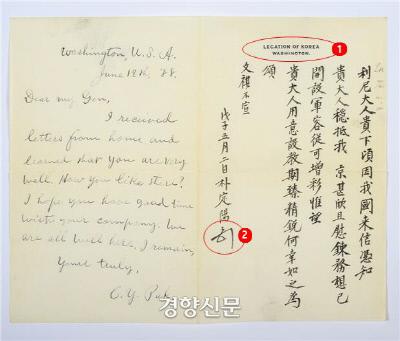 Washington, U.S.A.
June 12th, '88.
Dear my Gen,
I received
letters from home and
learned that you are very
well. How you like there?
I hope you have good time
with your company. We
are all well here. I remain,
Yours truly,
C. Y. Pak
LEGATION OF KOREA
WASHINGTON.
1
利尼大人貴下頃因我國來信憑知
貴大人穩抵我 京甚欣且慰鍊務想已
開設軍容從可增彩惟望
貴大人用意設教期臻精銳何幸如之為
頌
文祺不宣
戊子五月二日朴定陽
2
경향신문